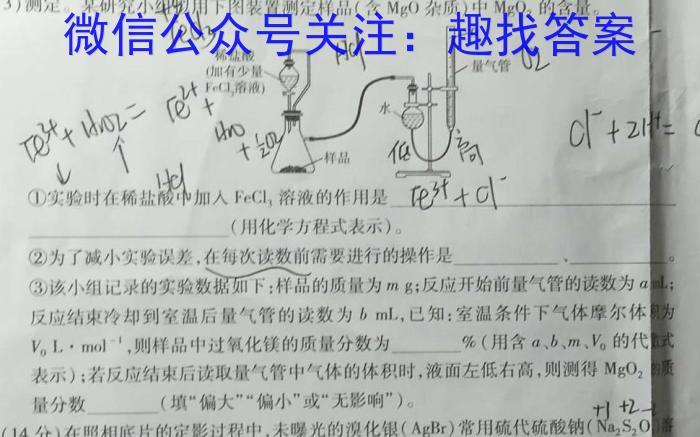 3)测定。某研究小组 用下图装置测定样品(含 MgO 杂质)中 MgO₂ 的含量。
微信公众号关注：趣找答案
稀盐酸
(加有少量
FeCl₃溶液)
HCl
量气管
O₂
水
样品
低
高
Fe³⁺ + H₂O₂ = Fe²⁺ +
H₂O + ½O₂
HCl
Fe³⁺ + Cl⁻
Cl⁻ + 2H⁺ =
①实验时在稀盐酸中加入 FeCl₃ 溶液的作用是
(用化学方程式表示)。
②为了减小实验误差,在每次读数前需要进行的操作是 、 。
③该小组记录的实验数据如下:样品的质量为 m g;反应开始前量气管的读数为 a mL;
反应结束冷却到室温后量气管的读数为 b mL,已知:室温条件下气体摩尔体积为
V₀ L·mol⁻¹,则样品中过氧化镁的质量分数为 %(用含 a、b、m、V₀ 的代数式
表示);若反应结束后读取量气管中气体的体积时,液面左低右高,则测得 MgO₂ 的质
量分数 (填“偏大”“偏小”或“无影响”)。
+1 +2 -2
(14 分)在照相底片的定影过程中,未曝光的溴化银(AgBr)常用硫代硫酸钠(Na₂S₂O₃)溶